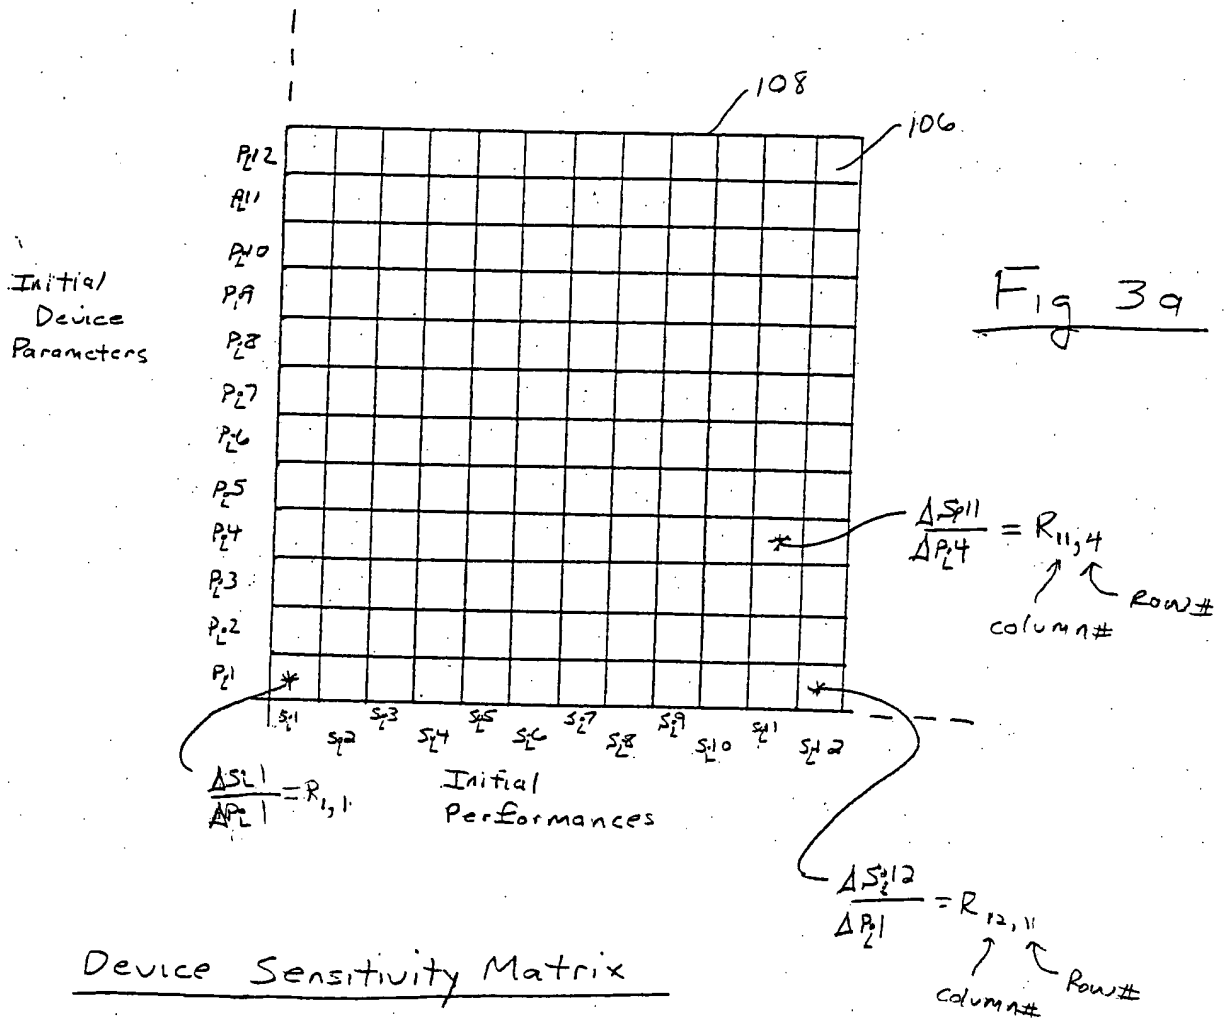 108
106
Pi12
Pi11
Pi10
Pi9
Pi8
Pi7
Pi6
Pi5
Pi4
Pi3
Pi2
Pi1
Initial
Device
Parameters
Fig 3a
ΔSi11
ΔPi4
= R11,4
column#
Row#
Si1
Si2
Si3
Si4
Si5
Si6
Si7
Si8
Si9
Si10
Si11
Si12
ΔSi1
ΔPi1
= R1,1
Initial
Performances
ΔSi12
ΔPi1
= R12,11
column#
Row#
Device Sensitivity Matrix